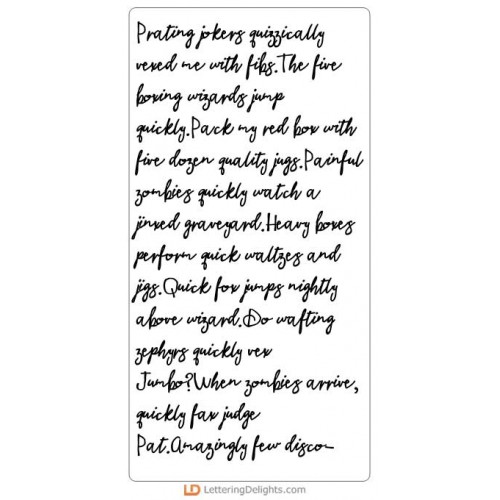 Prating jokers quizzically
vexed me with fibs.The five
boxing wizards jump
quickly.Pack my red box with
five dozen quality jugs.Painful
zombies quickly watch a
jinxed graveyard.Heavy boxes
perform quick waltzes and
jigs.Quick fox jumps nightly
above wizard.Do wafting
zephyrs quickly vex
Jumbo?When zombies arrive,
quickly fax judge
Pat.Amazingly few disco
LD LetteringDelights.com